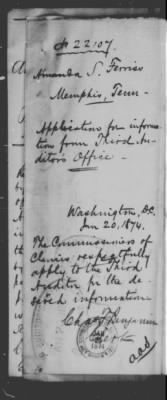 22107.
Amanda S. Ferriss
Memphis, Tenn-
Application for informa-
tion from Third Au-
ditor's Office.
Washington, D.C.
Jan 20, 1874.
The Commissioners of
Claims respectfully
apply to the Third
Auditor for the de-
sired information
Chas. F. Benjamin
Clerk